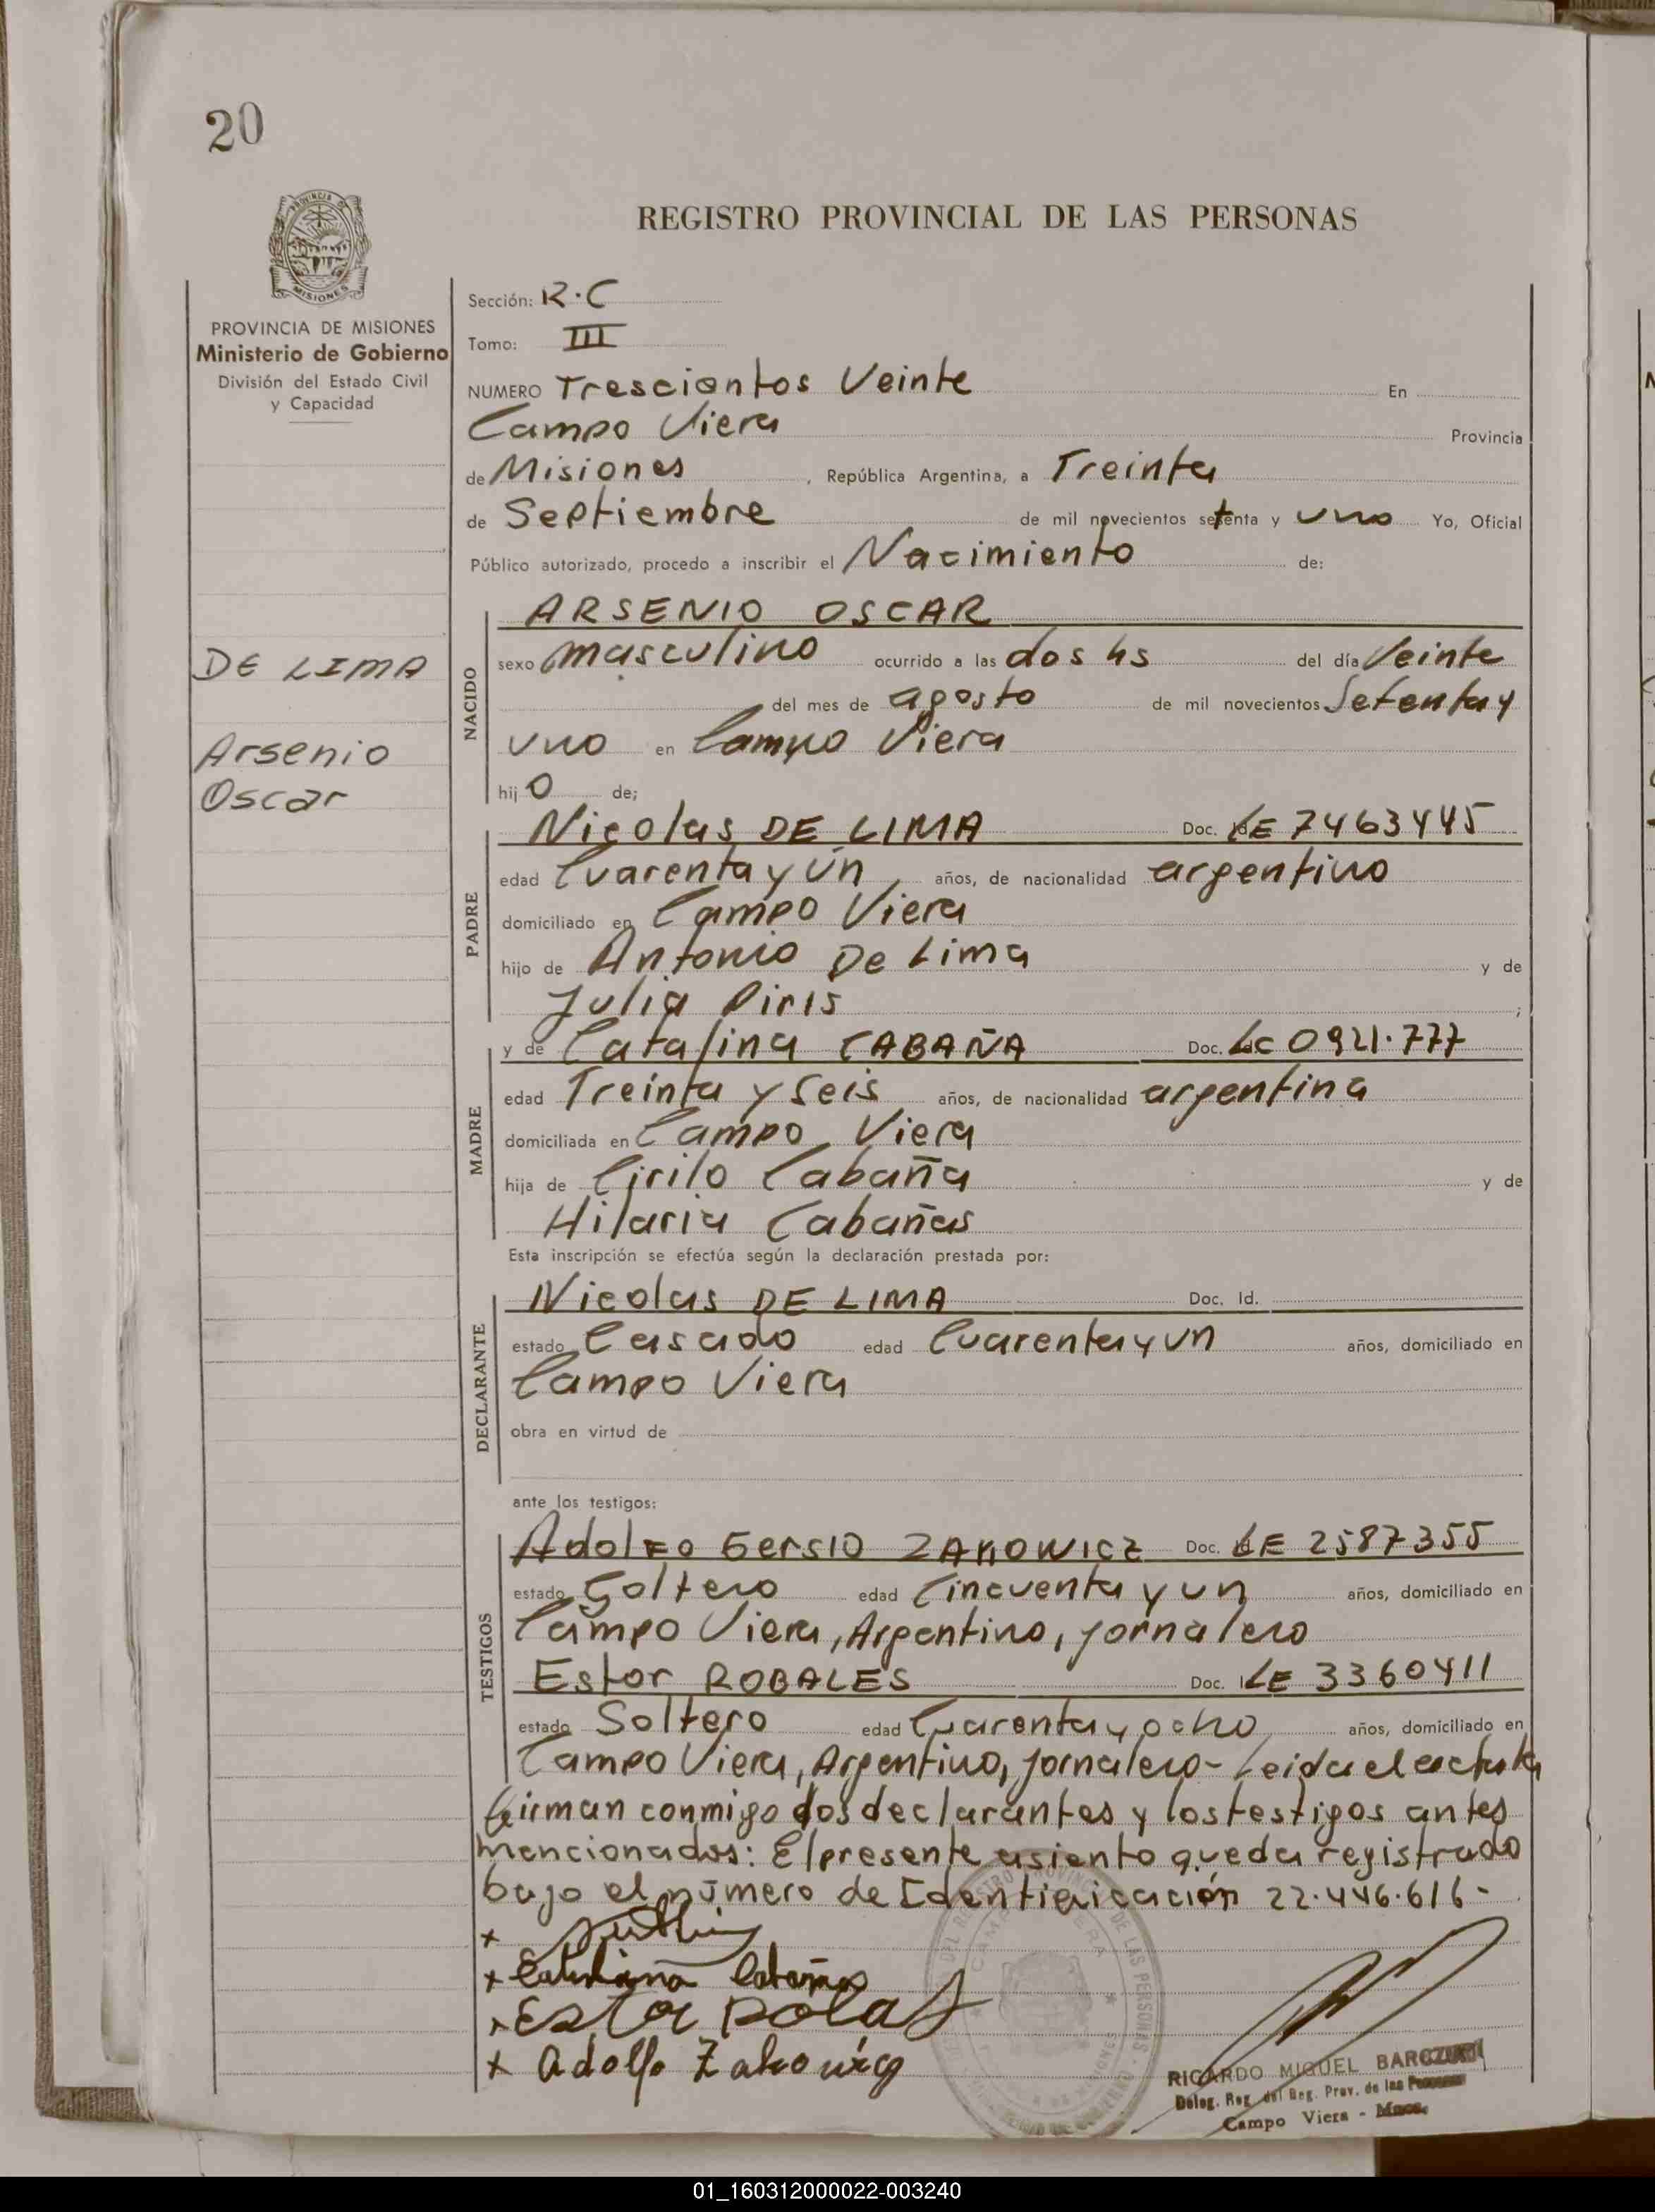 20
REGISTRO PROVINCIAL DE LAS PERSONAS
PROVINCIA DE
MISIONES
PROVINCIA DE MISIONES
Ministerio de Gobierno
División del Estado Civil
y Capacidad
DE LIMA
Arsenio
Oscar
Sección: R.C
Tomo: III
NUMERO Trescientos Veinte En
Campo Viera Provincia
de Misiones, República Argentina, a Treinta
de Septiembre de mil novecientos setenta y uno Yo, Oficial
Público autorizado, procedo a inscribir el Nacimiento de:
NACIDO
ARSENIO OSCAR
sexo masculino ocurrido a las dos hs del día Veinte
del mes de agosto de mil novecientos Setenta y
uno en Campo Viera
hijo de;
PADRE
Nicolas DE LIMA Doc. LE 7463445
edad Cuarenta y un años, de nacionalidad argentino
domiciliado en Campo Viera
hijo de Antonio De Lima y de
Julia Piris ;
MADRE
y de Catalina CABAÑA Doc. LC 0921.777
edad Treinta y Seis años, de nacionalidad argentina
domiciliada en Campo Viera
hija de Cirilo Cabaña y de
Hilaria Cabañas
Esta inscripción se efectúa según la declaración prestada por:
DECLARANTE
Nicolas DE LIMA Doc. Id.
estado Casado edad Cuarenta y un años, domiciliado en
Campo Viera
obra en virtud de
ante los testigos:
TESTIGOS
Adolfo Gersio ZAKOWICZ Doc. LE 2587355
estado Soltero edad Cincuenta y un años, domiciliado en
Campo Viera, Argentino, jornalero
Estor ROBALES Doc. LE 3360411
estado Soltero edad Cuarenta y ocho años, domiciliado en
Campo Viera, Argentino, jornalero - Leida el acta la
firman conmigo los declarantes y los testigos antes
mencionados: El presente asiento queda registrado
bajo el número de Identificación 22.446.616-
x
x Catalina Cabañas
x Estor
x Adolfo Zakowicz
RICARDO MIGUEL
Deleg. Reg. del Reg. Prov. de las Personas
Campo Viera - Mnes.
01_160312000022-003240